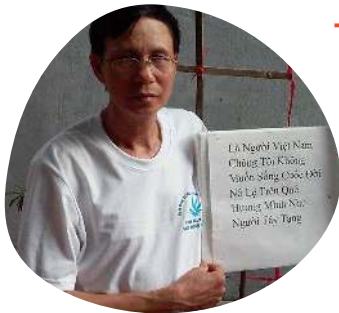 Là Người Việt Nam
Chúng Tôi Không
Muốn Sống Cuộc Đời
Nô Lệ Trên Quê
Hương Mình Như
Người Tây Tạng